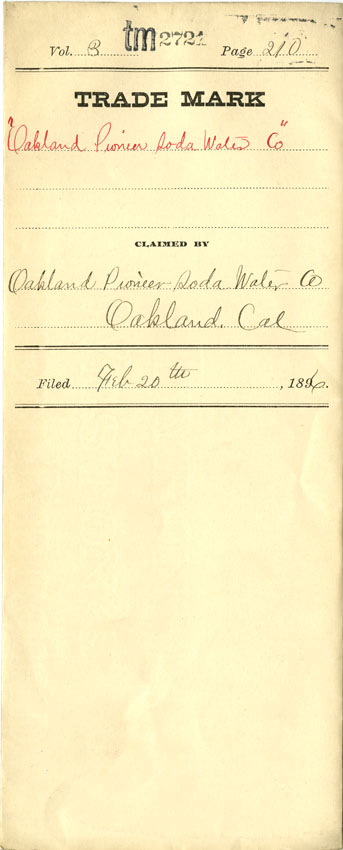 Vol. B tm 2721 Page 210
TRADE MARK
"Oakland Pioneer Soda Water Co"
CLAIMED BY
Oakland Pioneer Soda Water Co
Oakland, Cal
Filed Feb 20th, 1896.